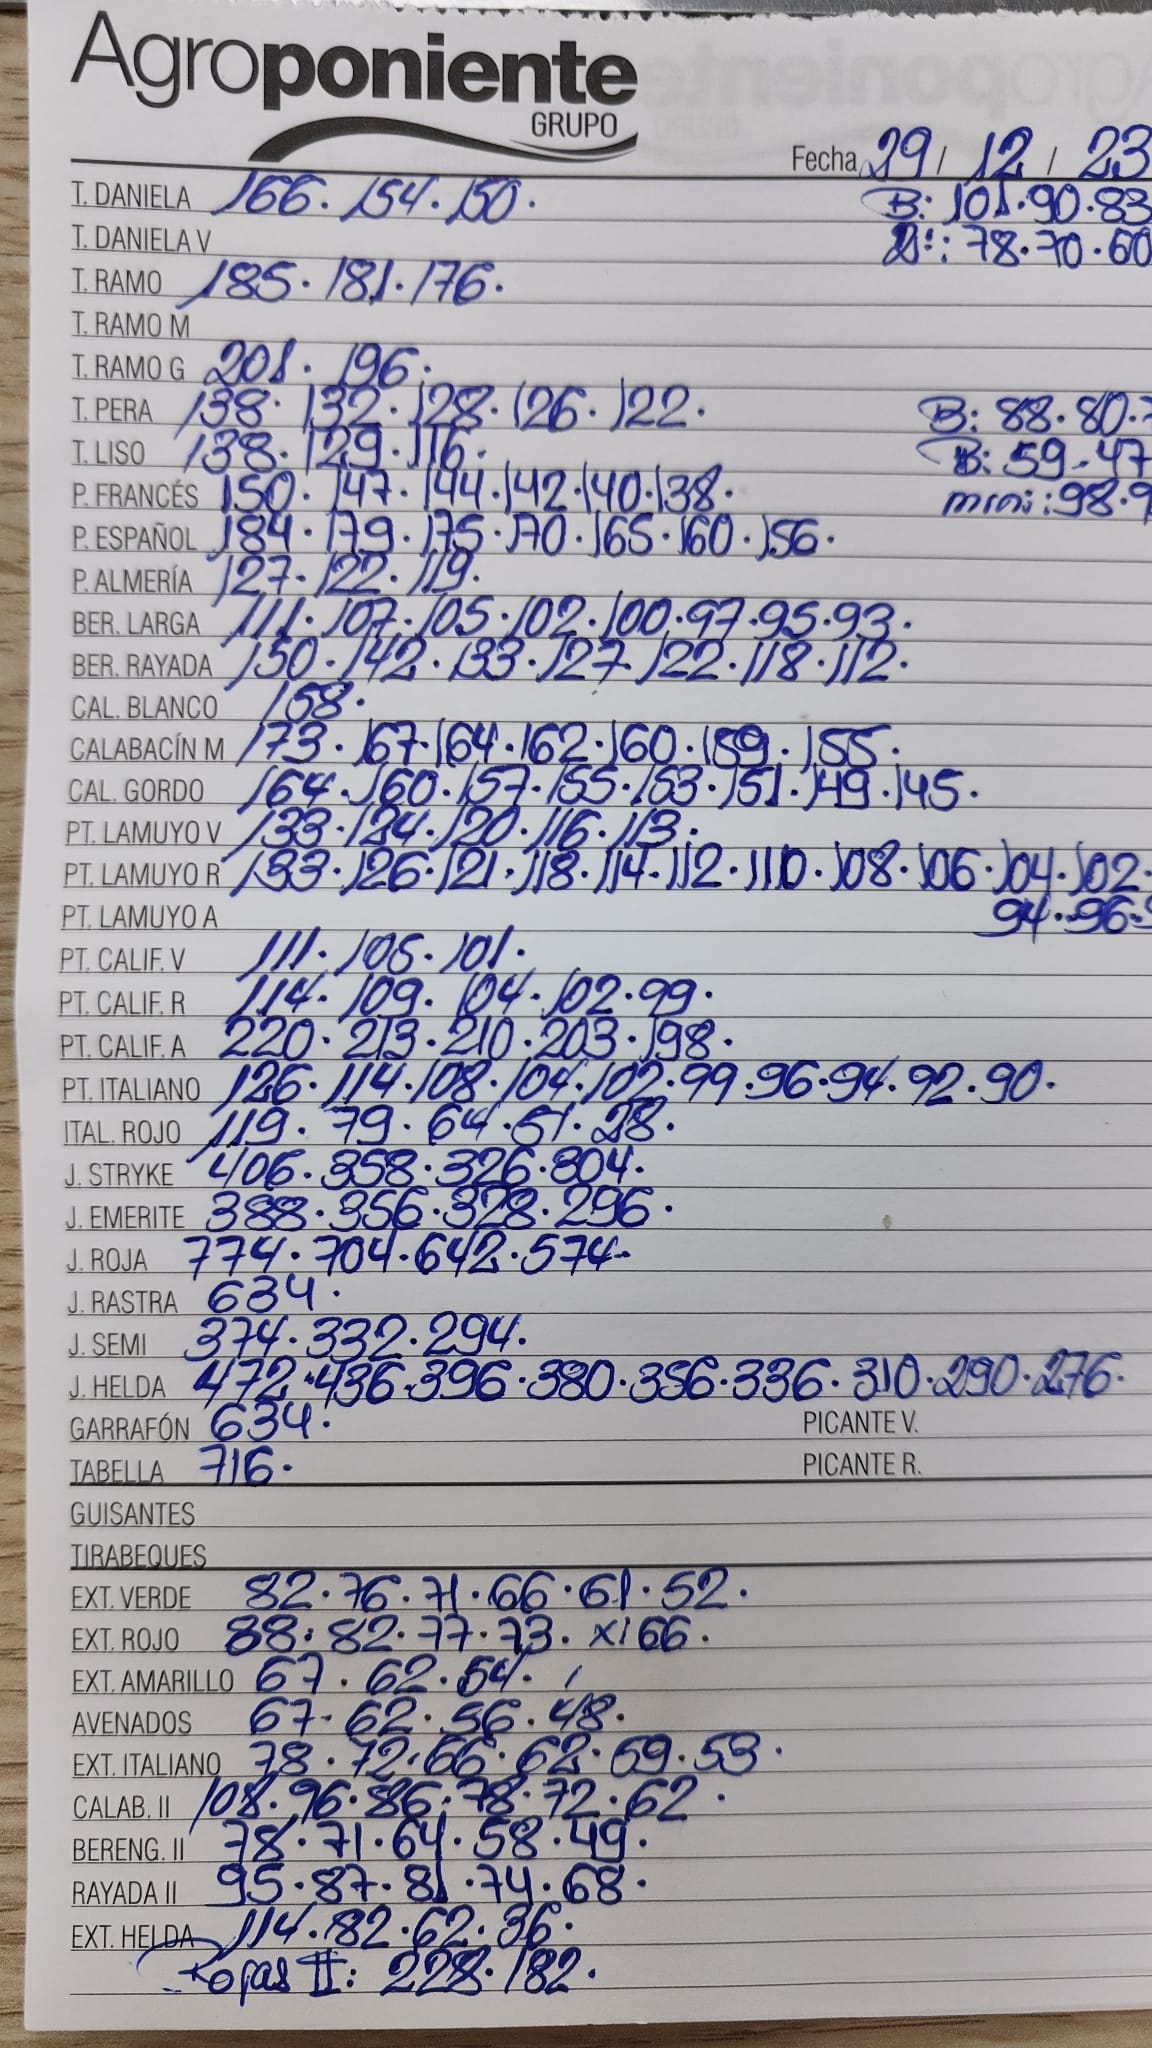 Agroponiente
GRUPO
Fecha 29 / 12 / 23
T. DANIELA 166. 154. 150. B: 101. 90. 83
T. DANIELA V : 78. 70. 60
T. RAMO 185. 181. 176.
T. RAMO M
T. RAMO G 201. 196.
T. PERA 138. 132. 128. 126. 122. B: 88. 80.
T. LISO 138. 129. 116. B: 59. 47
P. FRANCÉS 150. 147. 144. 142. 140. 138. mini: 98.
P. ESPAÑOL 184. 179. 175. 170. 165. 160. 156.
P. ALMERÍA 127. 122. 119.
BER. LARGA 111. 107. 105. 102. 100. 97. 95. 93.
BER. RAYADA 150. 142. 133. 127. 122. 118. 112.
CAL. BLANCO 158.
CALABACÍN M 173. 167. 164. 162. 160. 159. 155.
CAL. GORDO 164. 160. 157. 155. 153. 151. 149. 145.
PT. LAMUYO V 133. 124. 120. 116. 113.
PT. LAMUYO R 133. 126. 121. 118. 114. 112. 110. 108. 106. 104. 102.
PT. LAMUYO A 94. 96.
PT. CALIF. V 111. 105. 101.
PT. CALIF. R 114. 109. 104. 102. 99.
PT. CALIF. A 220. 213. 210. 203. 198.
PT. ITALIANO 126. 114. 108. 104. 102. 99. 96. 94. 92. 90.
ITAL. ROJO 119. 79. 64. 51. 28.
J. STRYKE 406. 358. 326. 304.
J. EMERITE 388. 356. 328. 296.
J. ROJA 774. 704. 642. 574.
J. RASTRA 634.
J. SEMI 374. 332. 294.
J. HELDA 472. 436. 396. 380. 356. 336. 310. 290. 276.
GARRAFÓN 634. PICANTE V.
TABELLA 716. PICANTE R.
GUISANTES
TIRABEQUES
EXT. VERDE 82. 76. 71. 66. 61. 52.
EXT. ROJO 88. 82. 77. 73. x: 66.
EXT. AMARILLO 67. 62. 54.
AVENADOS 67. 62. 56. 48.
EXT. ITALIANO 78. 72. 66. 62. 59. 53.
CALAB. II 108. 96. 86. 78. 72. 62.
BERENG. II 78. 71. 64. 58. 49.
RAYADA II 95. 87. 81. 74. 68.
EXT. HELDA 114. 82. 62. 36.
rojas II: 228. 182.